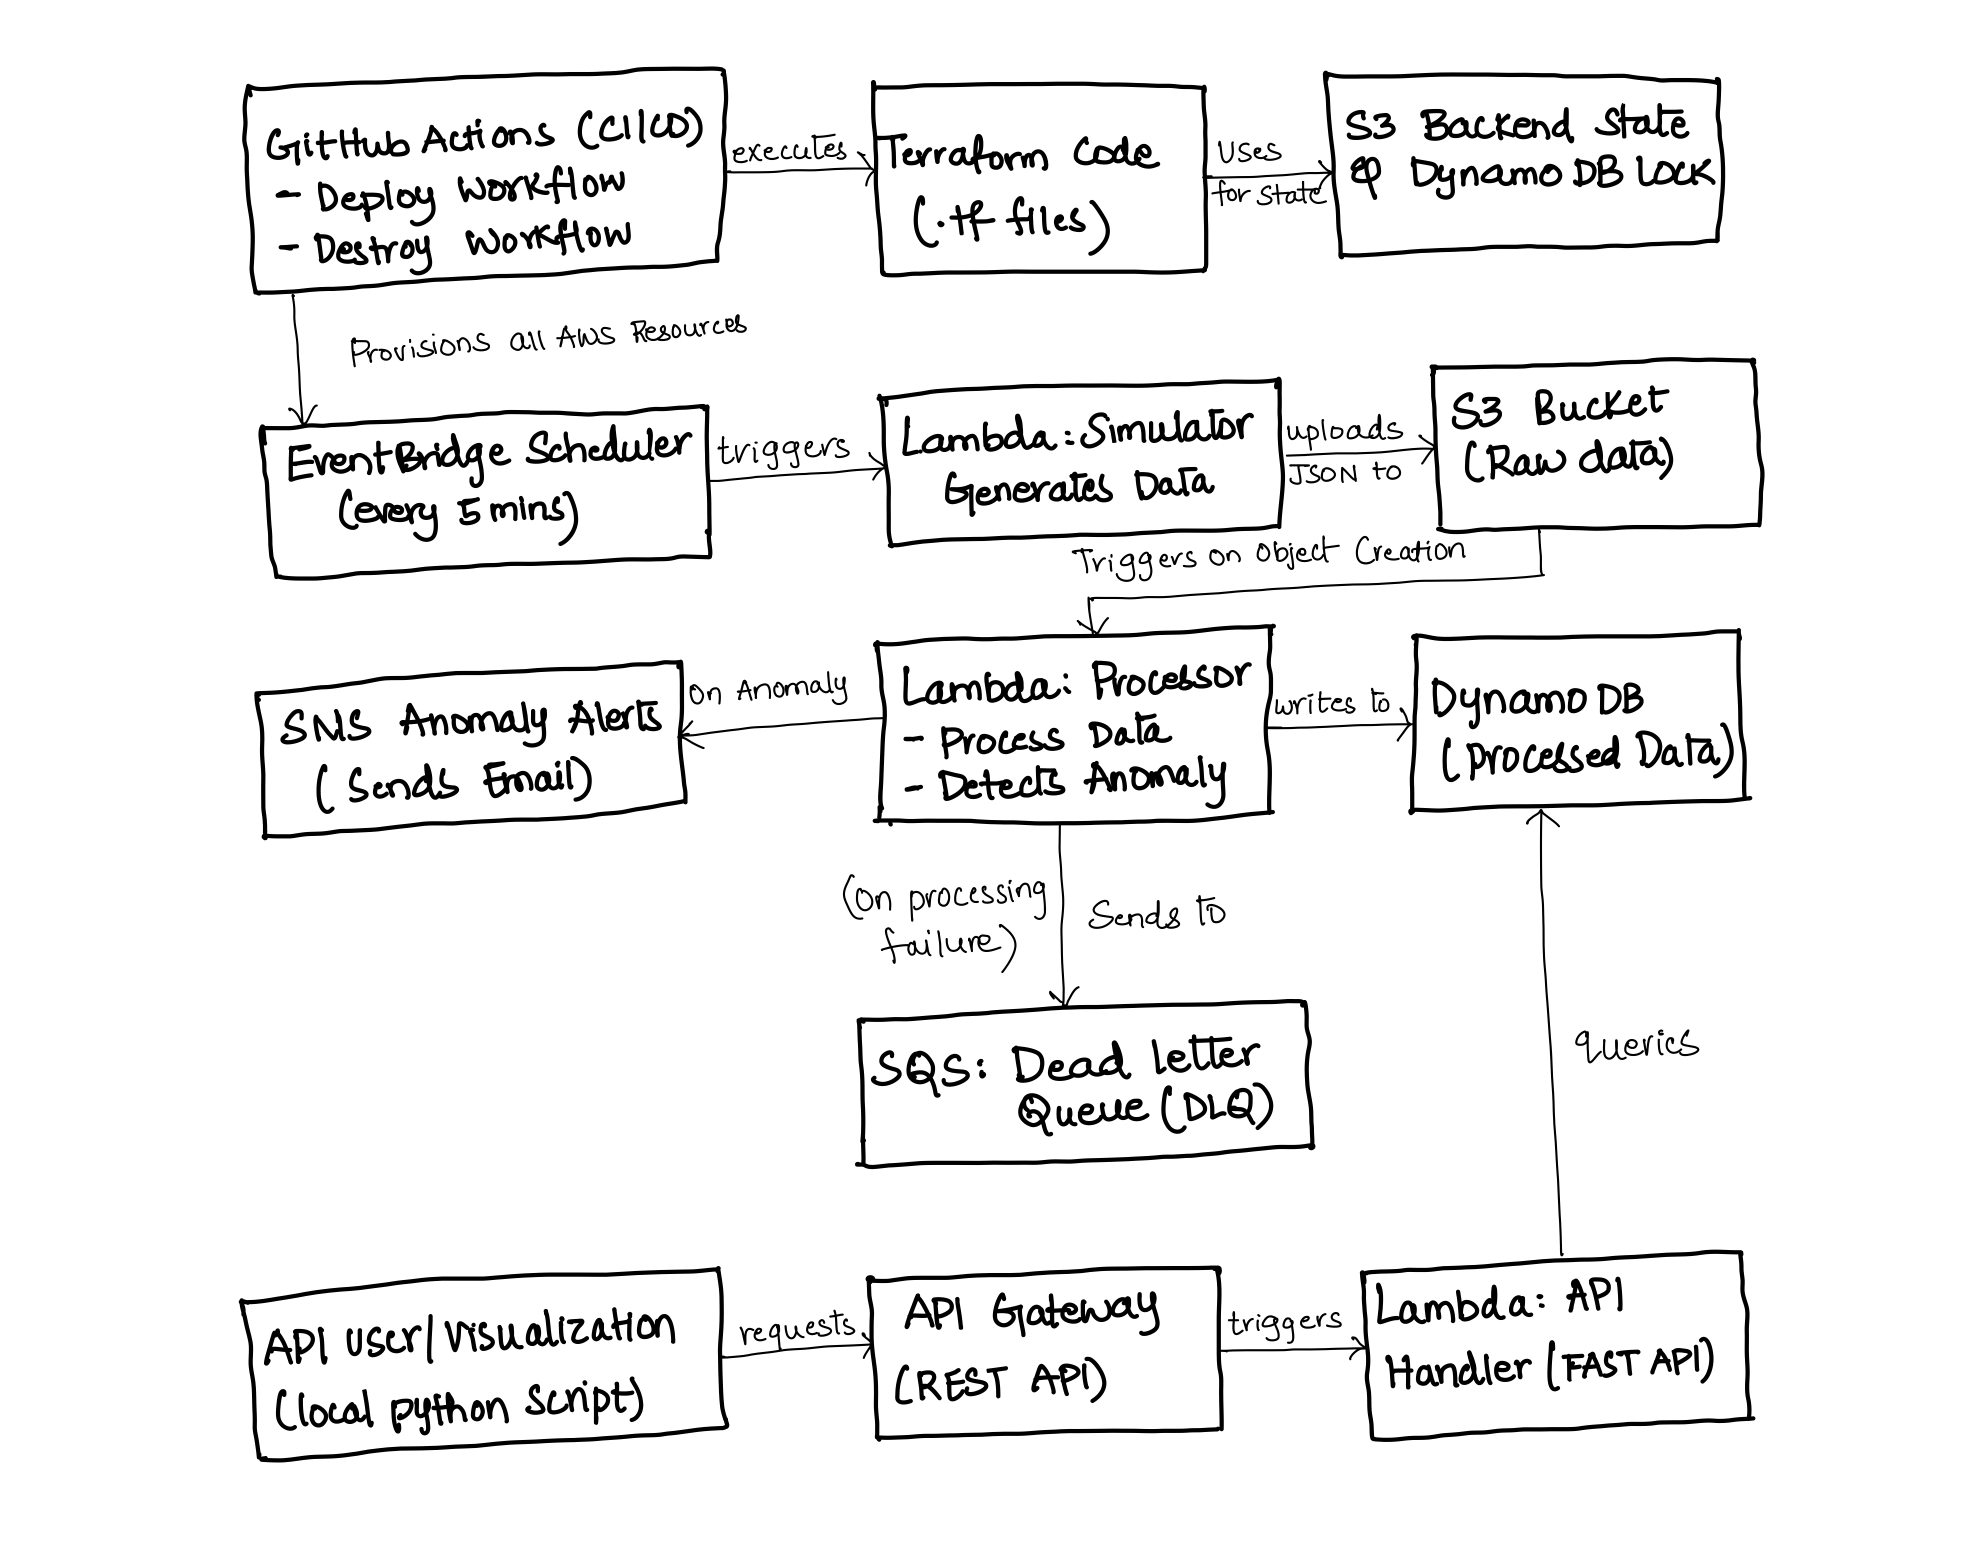 GitHub Actions (CI/CD)
- Deploy Workflow
- Destroy Workflow
executes
Terraform Code
(.tf files)
Uses
for state
S3 Backend State
& Dynamo DB Lock
Provisions all AWS Resources
EventBridge Scheduler
(every 5 mins)
triggers
Lambda: Simulator
Generates Data
uploads
JSON to
S3 Bucket
(Raw data)
Triggers on Object Creation
SNS Anomaly Alerts
(Sends Email)
On Anomaly
Lambda: Processor
- Process Data
- Detects Anomaly
writes to
Dynamo DB
(Processed Data)
(On processing
failure)
Sends to
SQS: Dead letter
Queue (DLQ)
queries
API User/Visualization
(local python script)
requests
API Gateway
(REST API)
triggers
Lambda: API
Handler (FAST API)